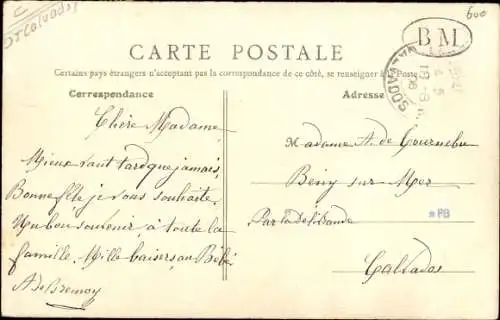 C
Calvados
600
BM
CARTE POSTALE
Certains pays étrangers n'acceptant pas la correspondance de ce côté, se renseigner à la Poste
Correspondance
Adresse
18-8
06
Chère Madame,
Mieux vaut tard que jamais,
Bonne fête je vous souhaite.
Un bon souvenir à toute la
famille. Mille baisers au Bébé
A de Bremoy
Madame A. de Gournebu
Beny sur Mer
Par la Délivrande
*PB
Calvados